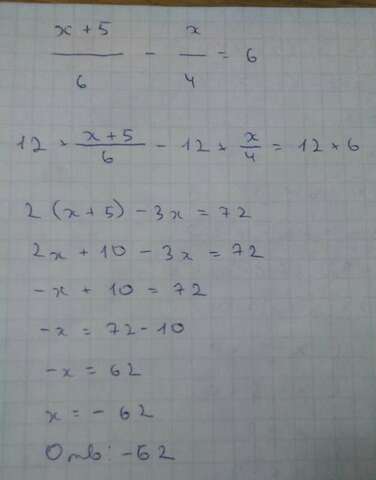 x + 5 / 6 - x / 4 = 6
12 * x + 5 / 6 - 12 * x / 4 = 12 * 6
2 (x + 5) - 3x = 72
2x + 10 - 3x = 72
-x + 10 = 72
-x = 72 - 10
-x = 62
x = - 62
Отв: -62